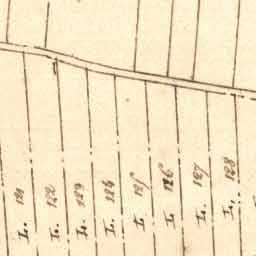 L. 121
L. 122
L. 123
L. 124
L. 125
L. 126
L. 127
L. 128